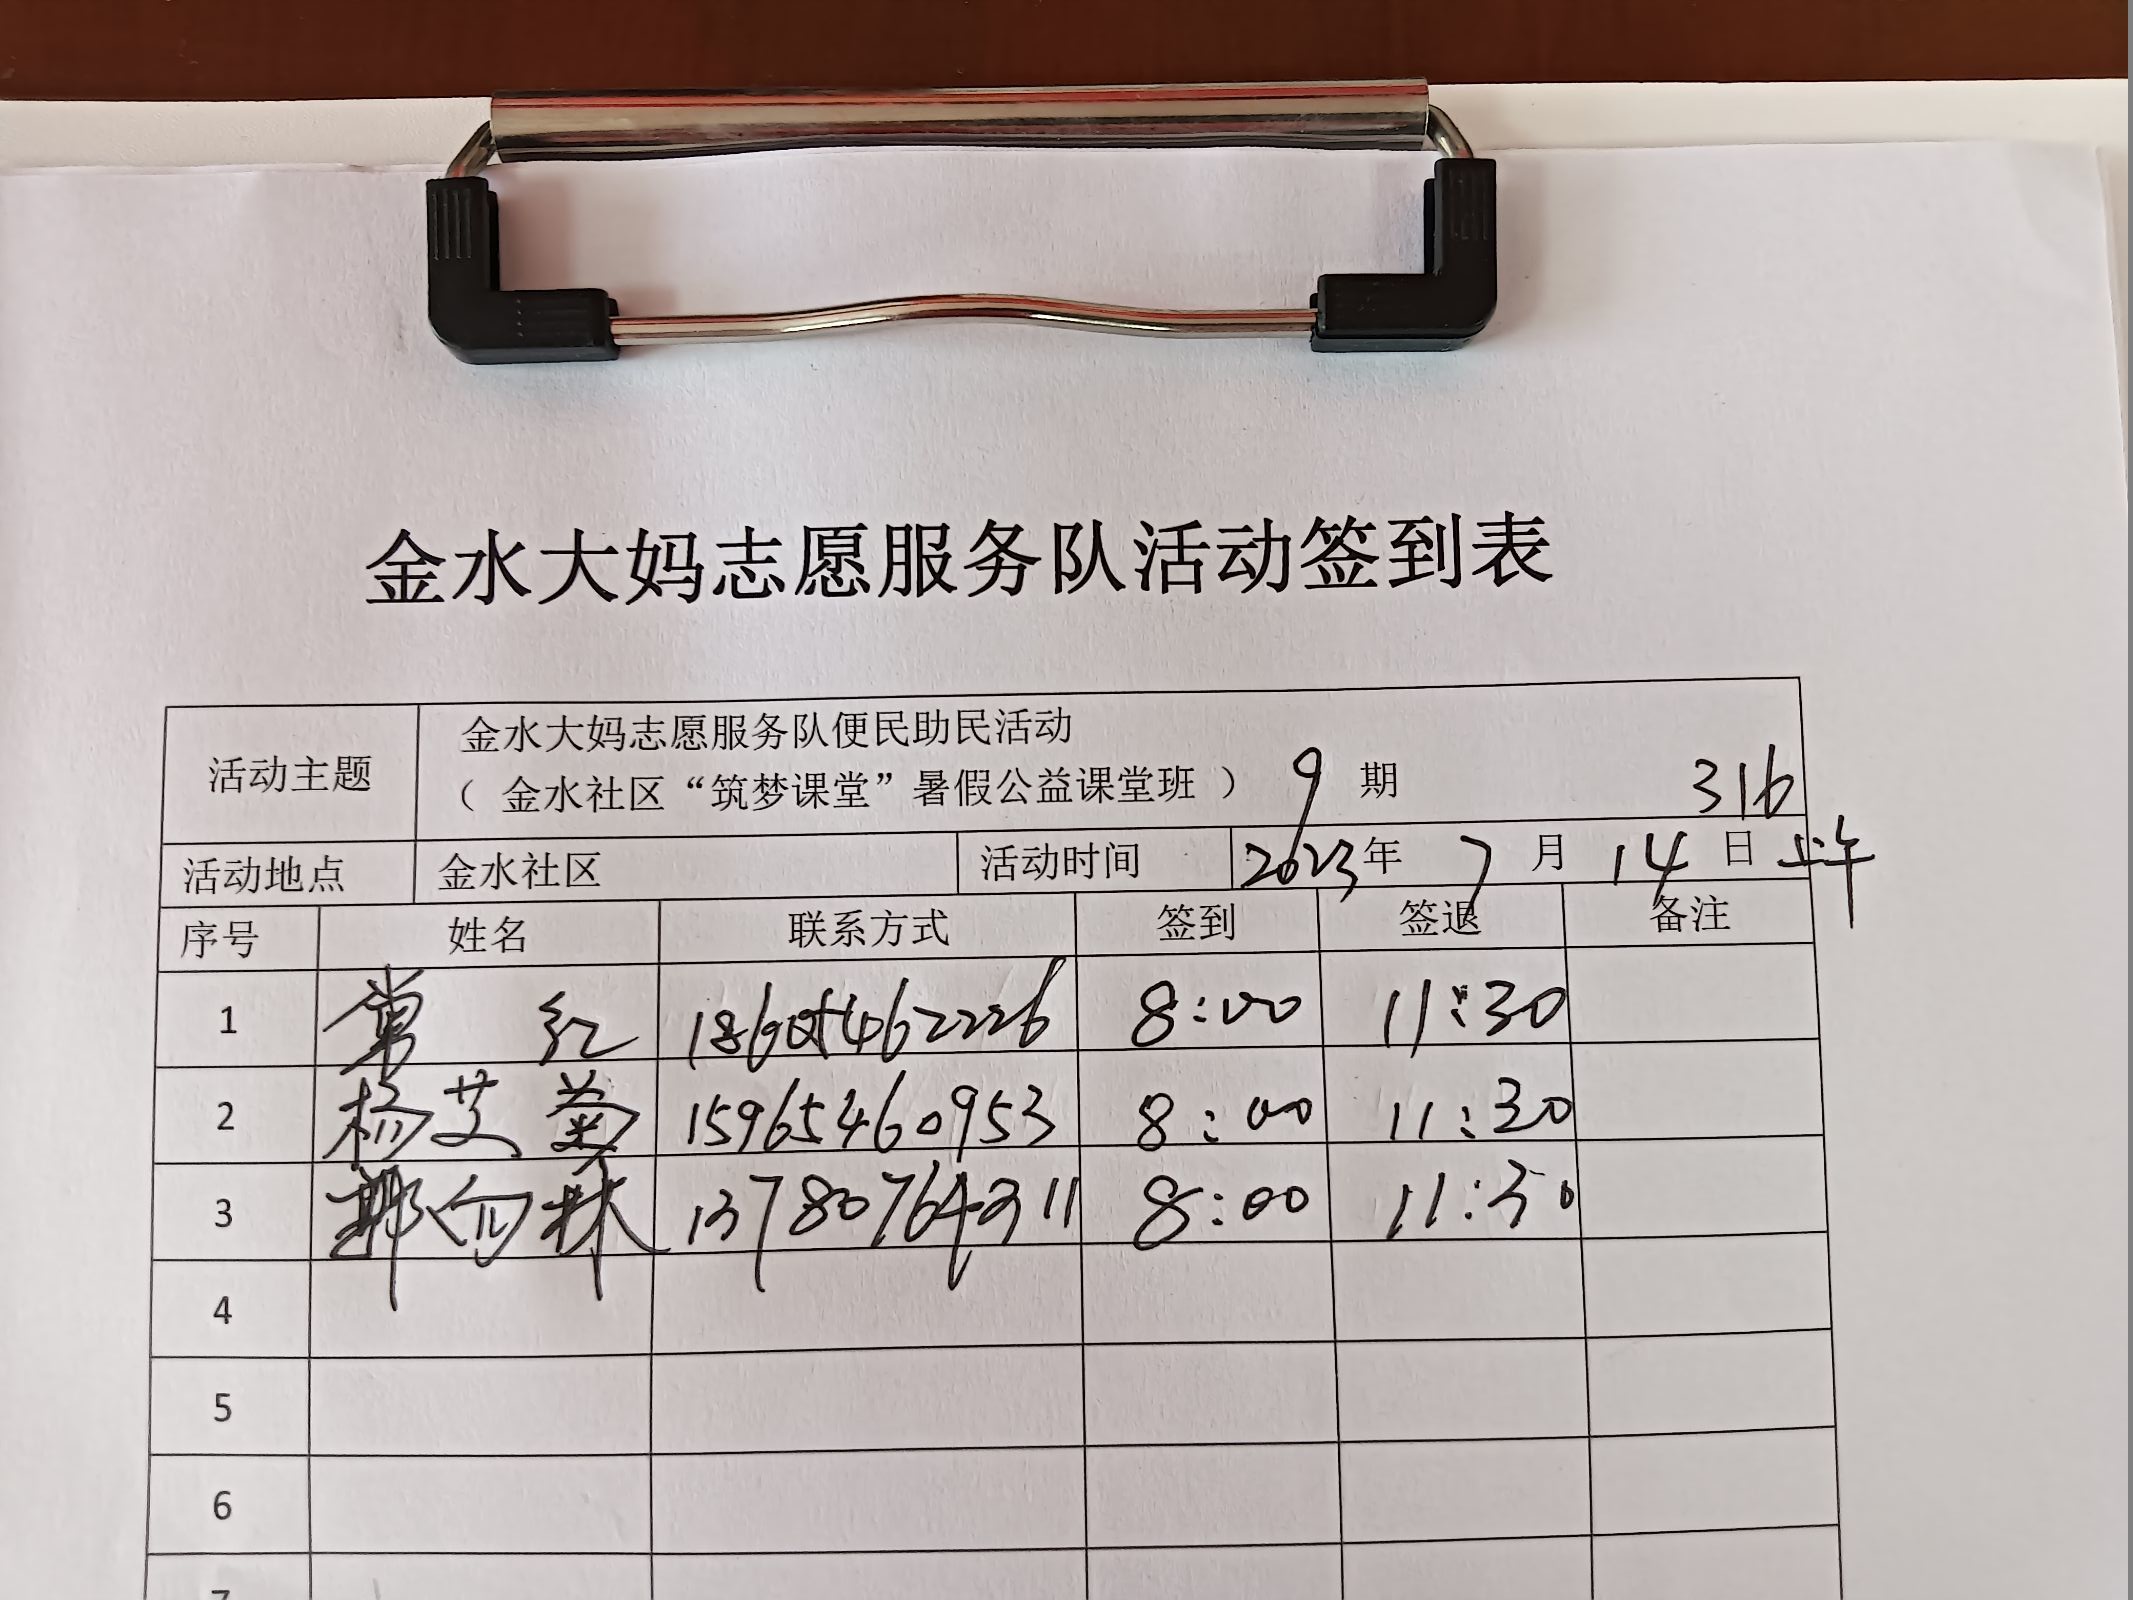 金水大妈志愿服务队活动签到表
活动主题 金水大妈志愿服务队便民助民活动
（ 金水社区“筑梦课堂”暑假公益课堂班 ） 9 期 316
活动地点 金水社区 活动时间 2023年 7 月 14 日 上午
序号 姓名 联系方式 签到 签退 备注
1 常 红 18605462226 8:00 11:30
2 杨艾菊 15965460953 8:00 11:30
3 郭向林 13780764311 8:00 11:30
4
5
6
7